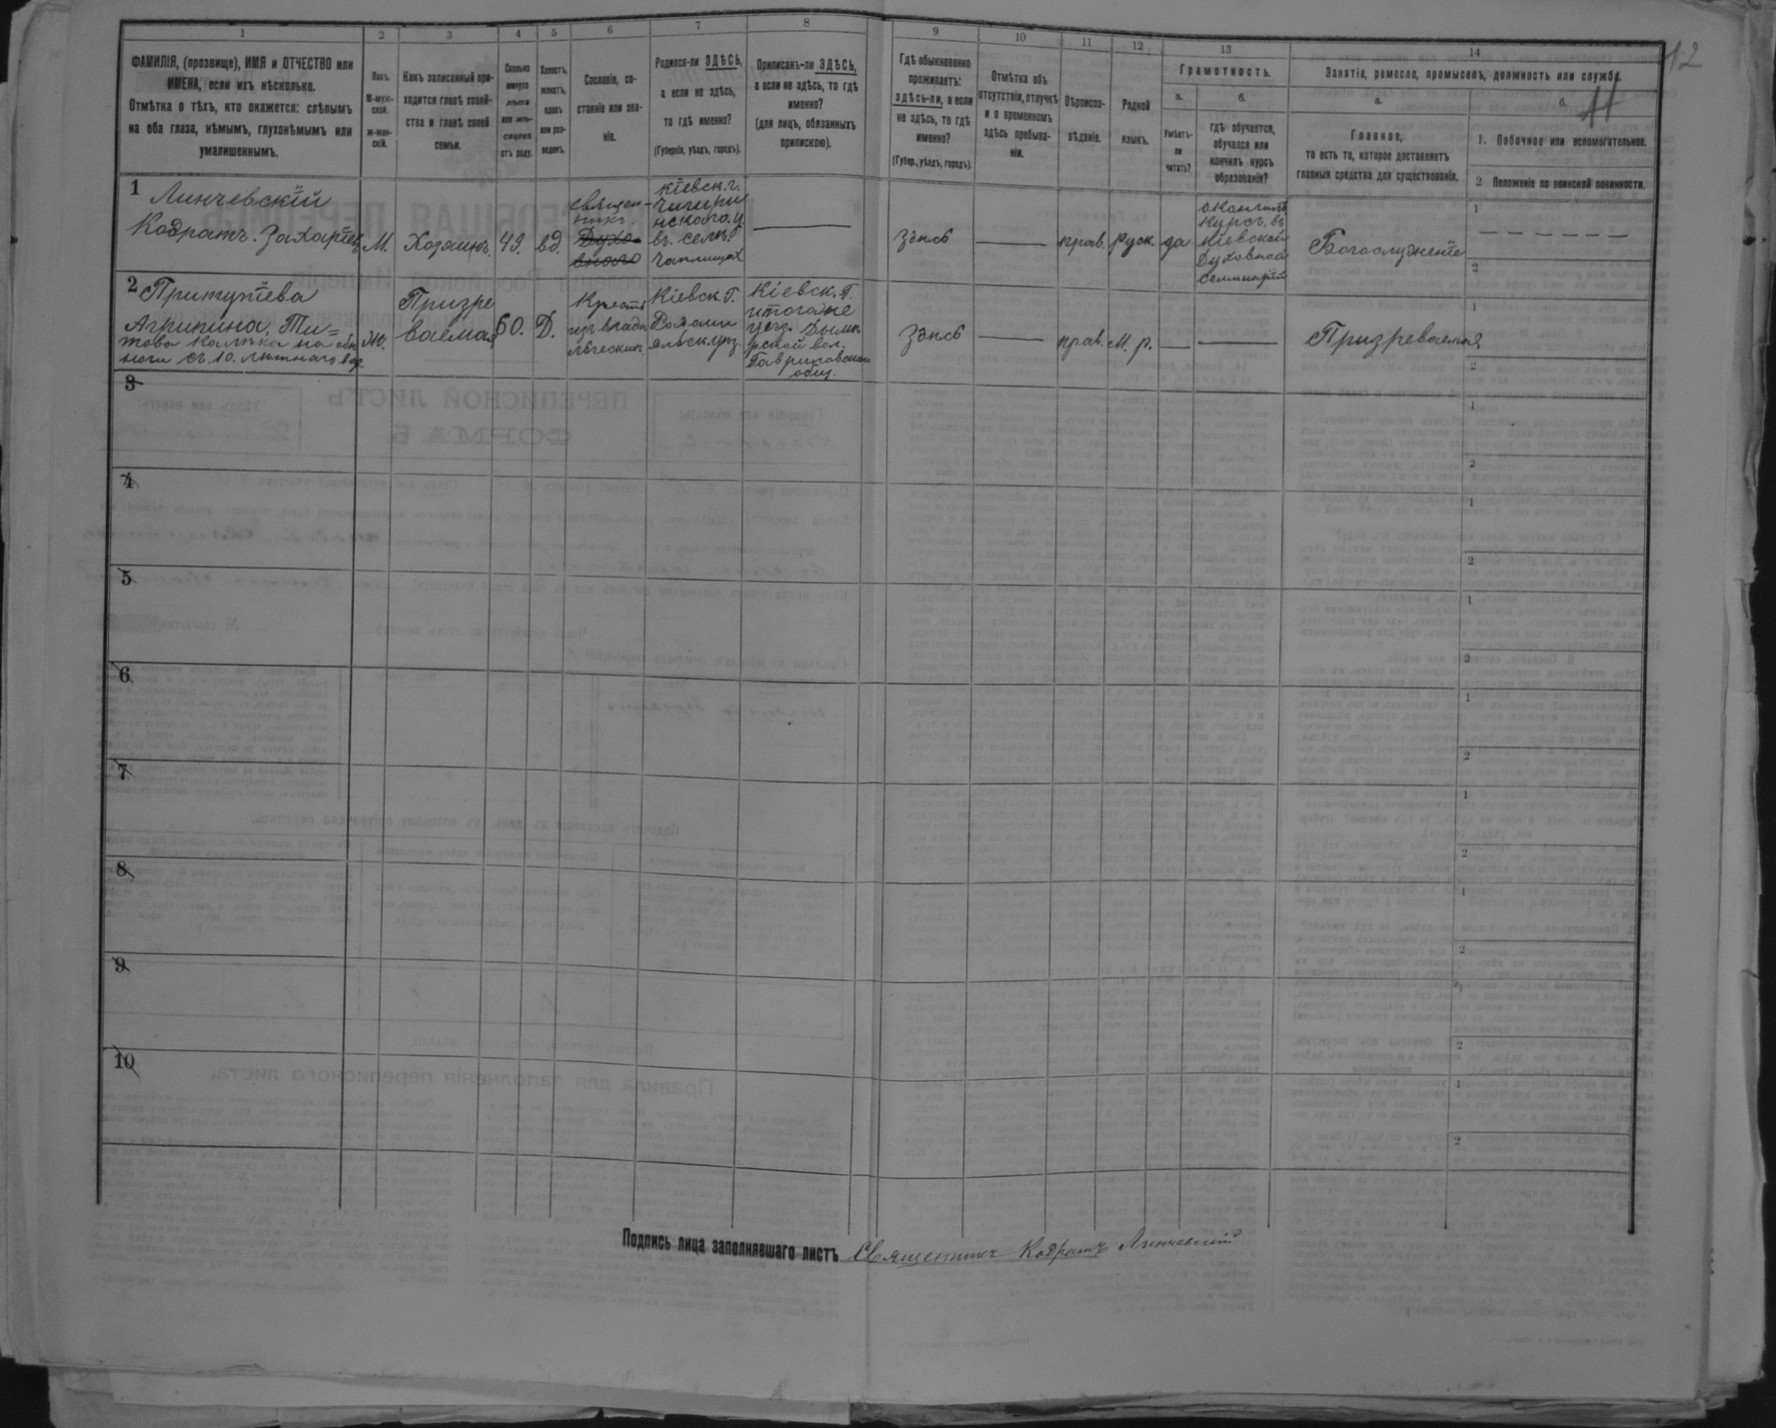 12
11
1
2
3
4
5
6
7
8
9
10
11
12
13
14
ФАМИЛІЯ, (прозвище), ИМЯ и ОТЧЕСТВО или
ИМЕНА, если ихъ нѣсколько.
Отмѣтка о тѣхъ, кто окажется: слѣпымъ
на оба глаза, нѣмымъ, глухонѣмымъ или
умалишеннымъ.
Полъ.
М-муж-
ской.
Ж-жен-
скій.
Какъ записанный при-
ходится главѣ хозяй-
ства и главѣ своей
семьи.
Сколько
минуло
лѣтъ
или мѣ-
сяцевъ
отъ роду.
Холостъ,
женатъ,
вдовъ
или раз-
веденъ.
Сословіе, со-
стояніе или зва-
ніе.
Родился-ли ЗДѢСЬ,
а если не здѣсь,
то гдѣ именно?
(Губернія, уѣздъ, городъ).
Приписанъ-ли ЗДѢСЬ,
а если не здѣсь, то гдѣ
именно?
(для лицъ, обязанныхъ
припискою).
Гдѣ обыкновенно
проживаетъ:
здѣсь-ли, а если
не здѣсь, то гдѣ
именно?
(Губер., уѣздъ, городъ).
Отмѣтка объ
отсутствіи, отлучкѣ
и о временномъ
здѣсь пребыва-
ніи.
Вѣроиспо-
вѣданіе.
Родной
языкъ.
Грамотность.
а.
Умѣетъ-
ли
читать?
б.
гдѣ обучается,
обучался или
кончилъ курсъ
образованія?
Занятіе, ремесло, промыселъ, должность или служба.
а.
Главное,
то есть то, которое доставляетъ
главныя средства для существованія.
б.
1. Побочное или вспомогательное.
2 Положеніе по воинской повинности.
1
Линчевскій
Кодратъ. Захаріевъ
М.
Хозяинъ
49.
вд.
Священ-
никъ.
Духо-
вного
Кіевск. г.
Чигири
нскаго. у
въ. селѣ.
Чаплищах
Здѣсь
прав.
руск.
да
окончилъ
курсъ. въ
Кіевской
Духовной
Семинаріи
Богослуженіе
1
2
2
Притупѣева
Агрипина. Ти=
това
ноги съ. 10. лѣтнаго воз.
Ж.
Призре
ваемая
60.
Д.
Крестья
изъ владѣ
льческихъ
Кіевск. Г.
Радомы
сльск. уѣз.
Кіевск. Г.
итогоже
уезд. Дыме
рской вол.
Гавриловскаго
общ.
Здѣсь
прав.
м. р.
Призреваемая
1
2
3
1
2
4
1
2
5
1
2
6
1
2
7
1
2
8
1
2
9
1
2
10
1
2
Подпись лица заполнявшаго листъ Священникъ Кодратъ Линчевскій